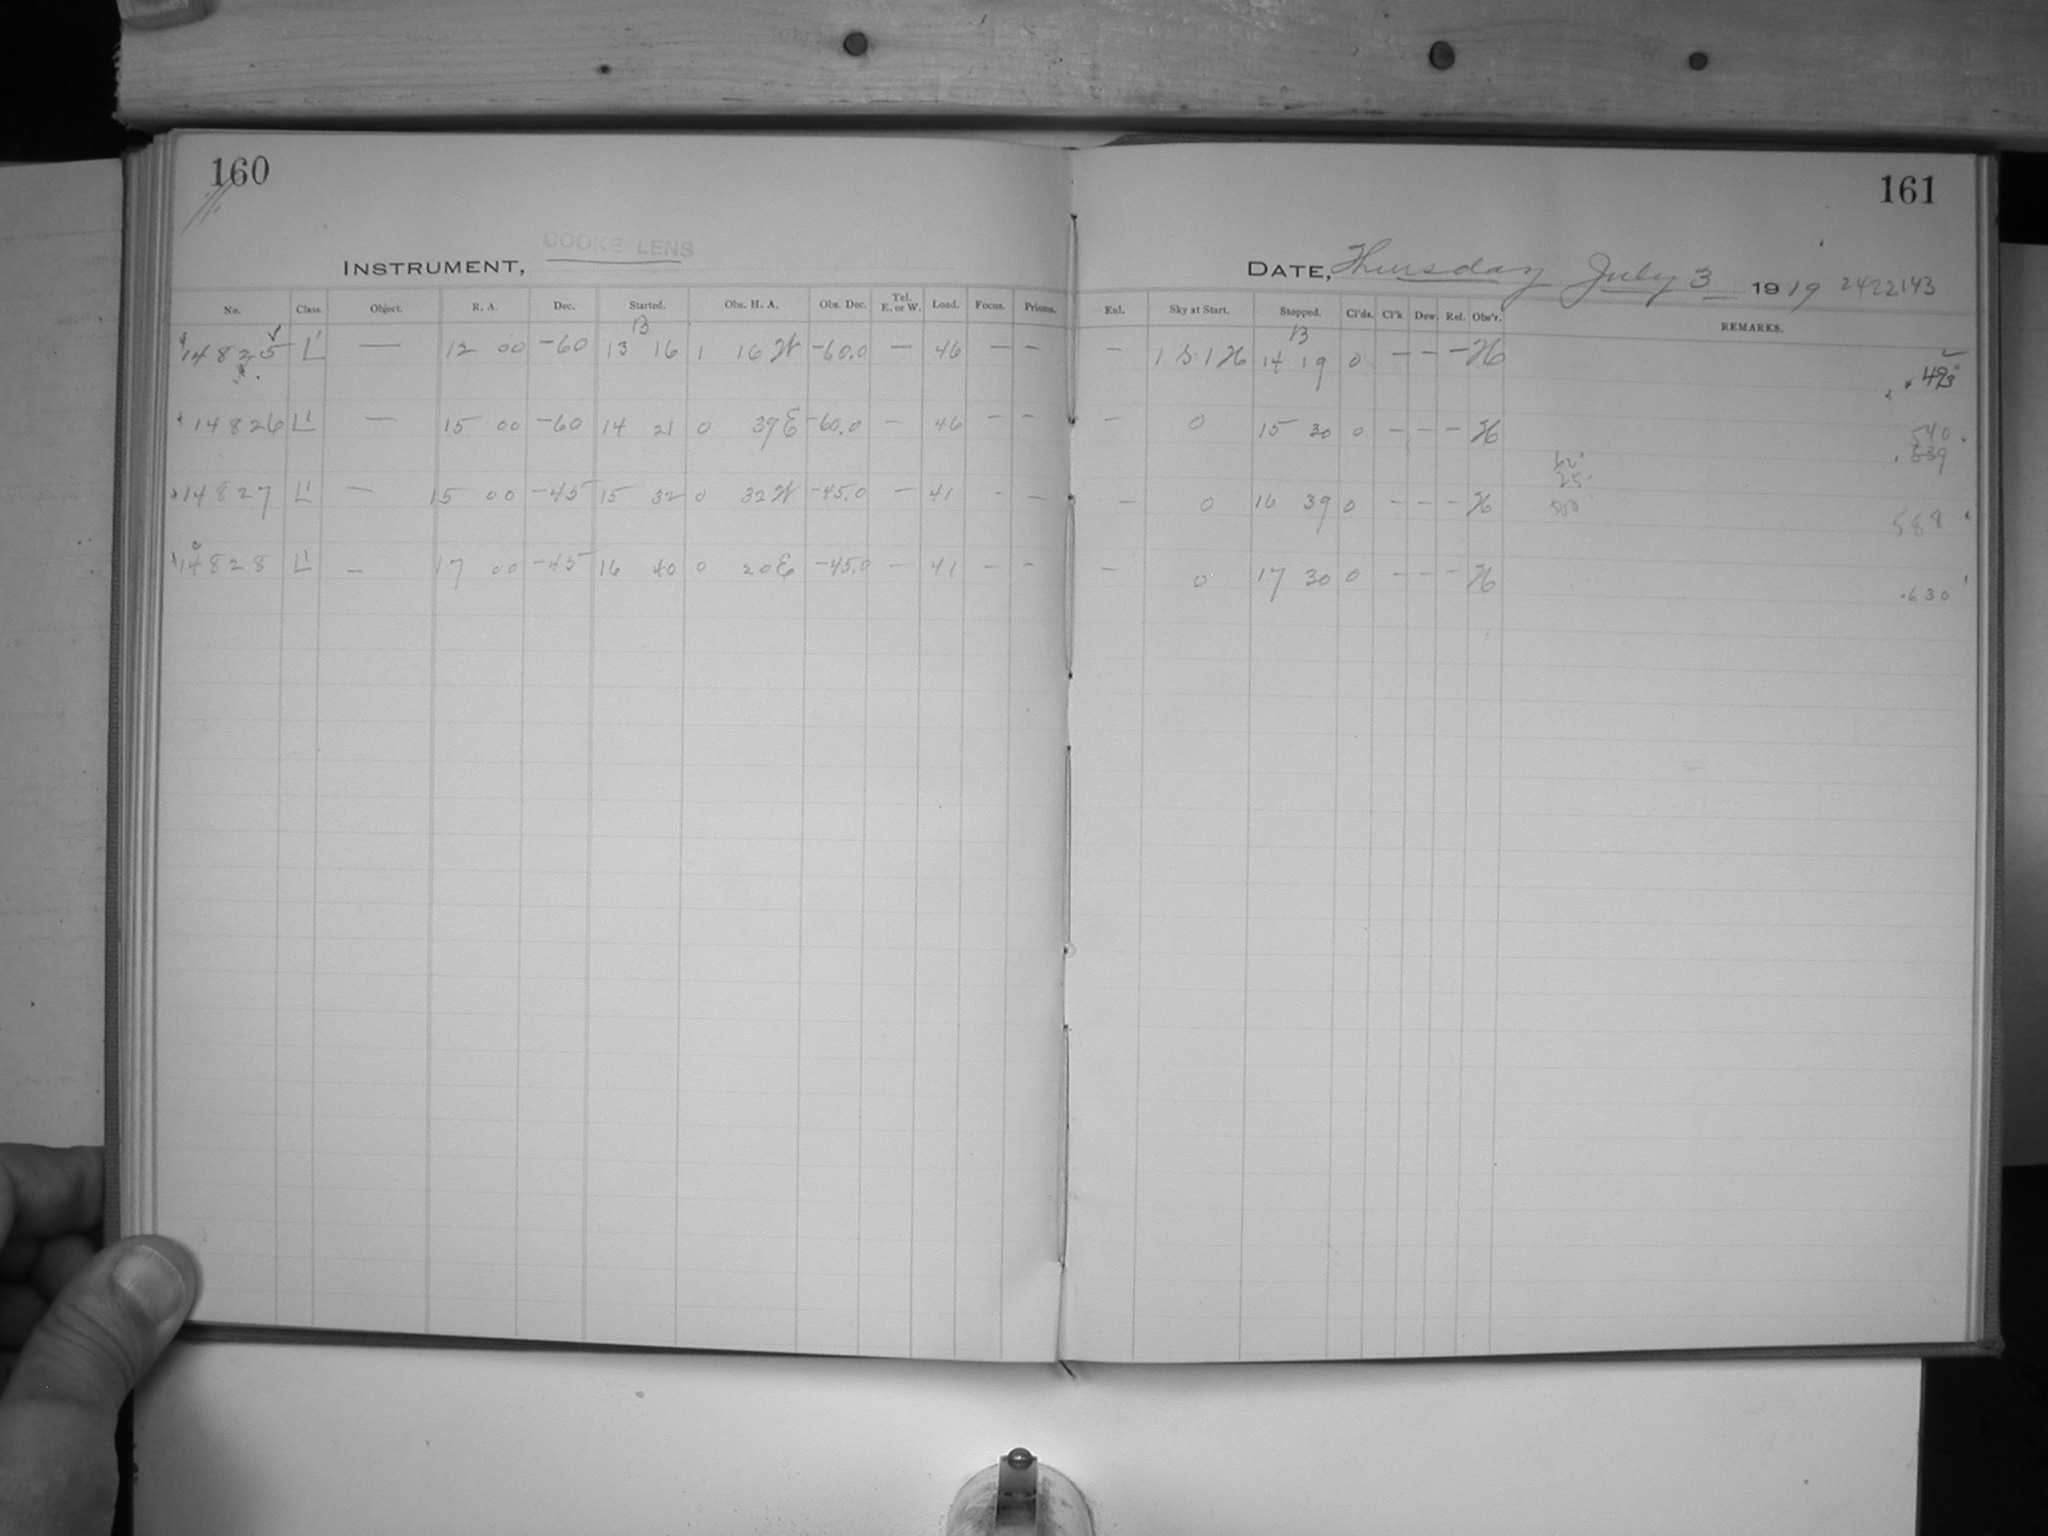 160
161
COOKE LENS
INSTRUMENT,
DATE, Thursday July 3 1919 2422143
No. Class. Object. R. A. Dec. Started. Obs. H. A. Obs. Dec. Tel. E. or W. Load. Focus. Prisms. Exl. Sky at Start. Stopped. Cl'ds. Cl'k Dew. Ref. Obs'r. REMARKS.
B B
14825 L' — 12 00 -60 13 16 1 16 W -60.0 — 46 — — — 1 S. 1 H 14 19 0 — — — H
.493
14826 L' — 15 00 -60 14 21 0 39 E -60.0 — 46 — — — 0 15 30 0 — — — H 540
.539
14827 L' — 15 00 -45 15 32 0 32 W -45.0 — 41 - — — 0 16 39 0 — — — H 588
14828 L' — 17 00 -45 16 40 0 20 E -45.0 — 41 — — — 0 17 30 0 — — — H .630